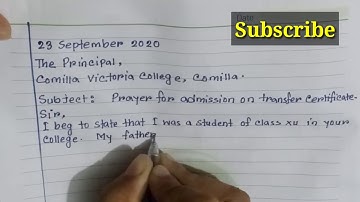 Subscribe
23 September 2020
The Principal,
Comilla Victoria College, Comilla.
Subject: Prayer for admission on transfer certificate.
Sir,
I beg to state that I was a student of class xii in your
college. My father